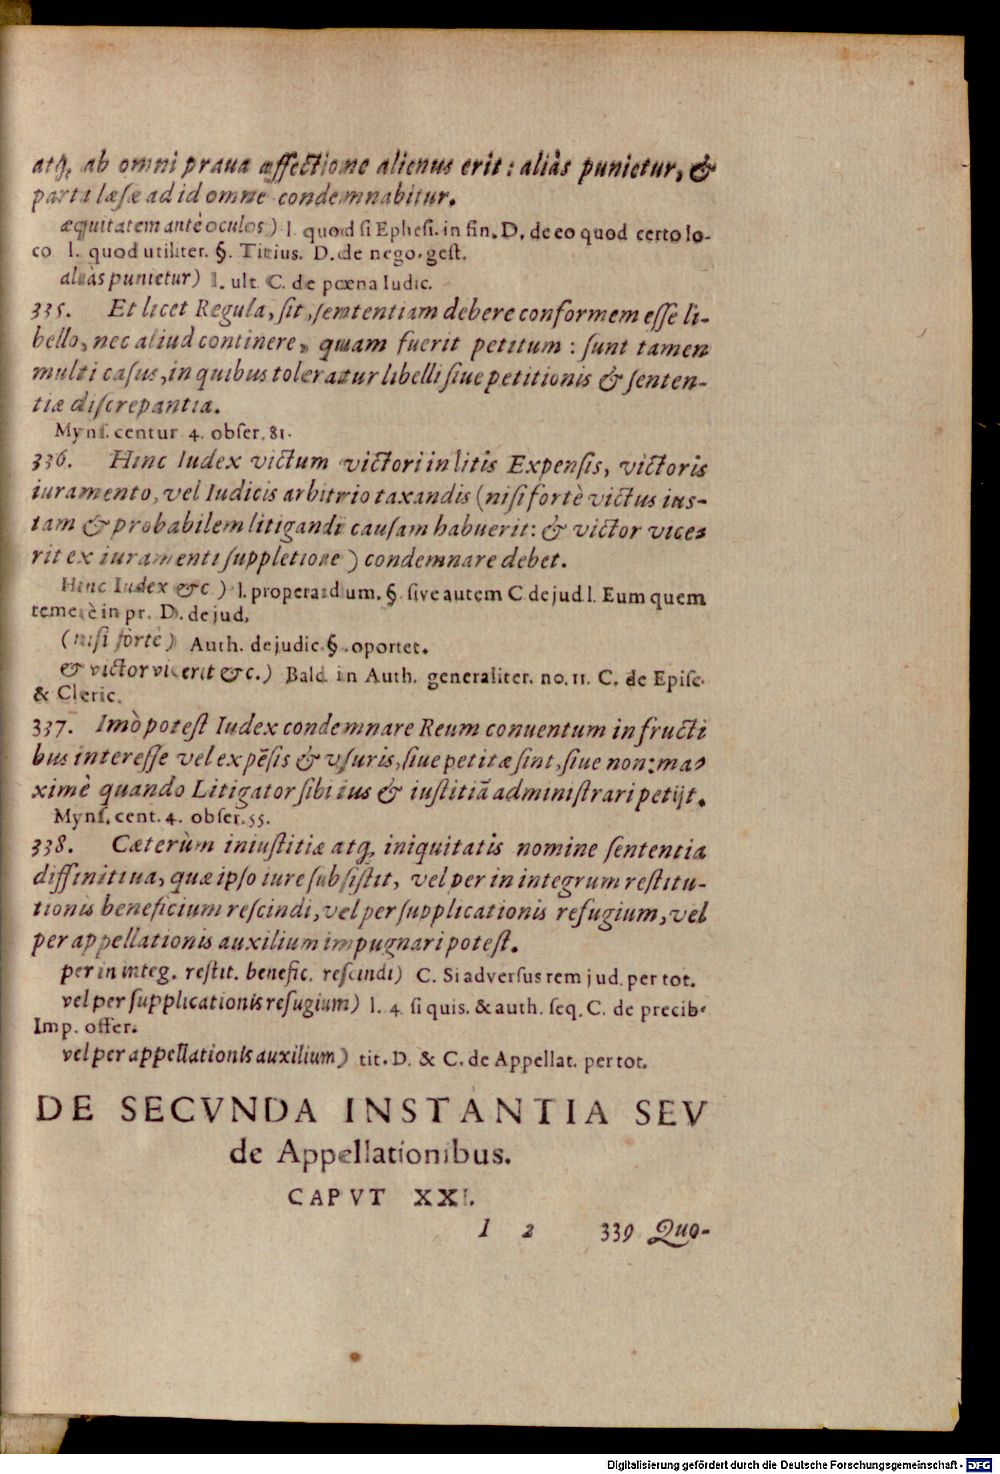 atq́; ab omni praua affectione alienus erit: aliàs punietur, &
parti læsæ ad id omne condemnabitur.
æquitatem antè oculos) l. quod si Ephesi. in fin. D. de eo quod certo lo-
co l. quod utiliter. §. Titius. D. de nego. gest.
aliàs punietur) l. ult. C. de pœna Iudic.
335. Et licet Regula, sit, sententiam debere conformem esse li-
bello, nec aliud continere, quam fuerit petitum: sunt tamen
multi casus, in quibus toleratur libelli siue petitionis & senten-
tiæ discrepantia.
Myns. centur. 4. obser. 81.
336. Hinc Iudex victum victori in litis Expensis, victoris
iuramento, vel Iudicis arbitrio taxandis (nisi fortè victus ius-
tam & probabilem litigandi causam habuerit: & victor vice-
rit ex iuramenti suppletione) condemnare debet.
Hinc Iudex &c.) l. properandum. §. sive autem C. de jud. l. Eum quem
temerè in pr. D. de jud,
(nisi fortè) Auth. de judic. §. oportet.
& victor vicerit &c.) Bald. in Auth. generaliter. no. 11. C. de Episc.
& Cleric.
337. Imò potest Iudex condemnare Reum conuentum in fructi
bus interesse vel expẽsis & vsuris, siue petitæ sint, siue non: ma-
ximè quando Litigator sibi ius & iustitiã administrari petijt.
Myns. cent. 4. obser. 55.
338. Cæterùm iniustitiæ atq́; iniquitatis nomine sententia
diffinitiua, quæ ipso iure subsistit, vel per in integrum restitu-
tionis beneficium rescindi, vel per supplicationis refugium, vel
per appellationis auxilium impugnari potest.
per in integ. restit. benefic. rescindi) C. Si adversus rem jud. per tot.
vel per supplicationis refugium) l. 4. si quis. & auth. seq. C. de precib.
Imp. offer.
vel per appellationis auxilium) tit. D. & C. de Appellat. per tot.
DE SECVNDA INSTANTIA SEV
de Appellationibus.
CAPVT XXI.
I 2 339 Quo-
Digitalisierung gefördert durch die Deutsche Forschungsgemeinschaft - DFG